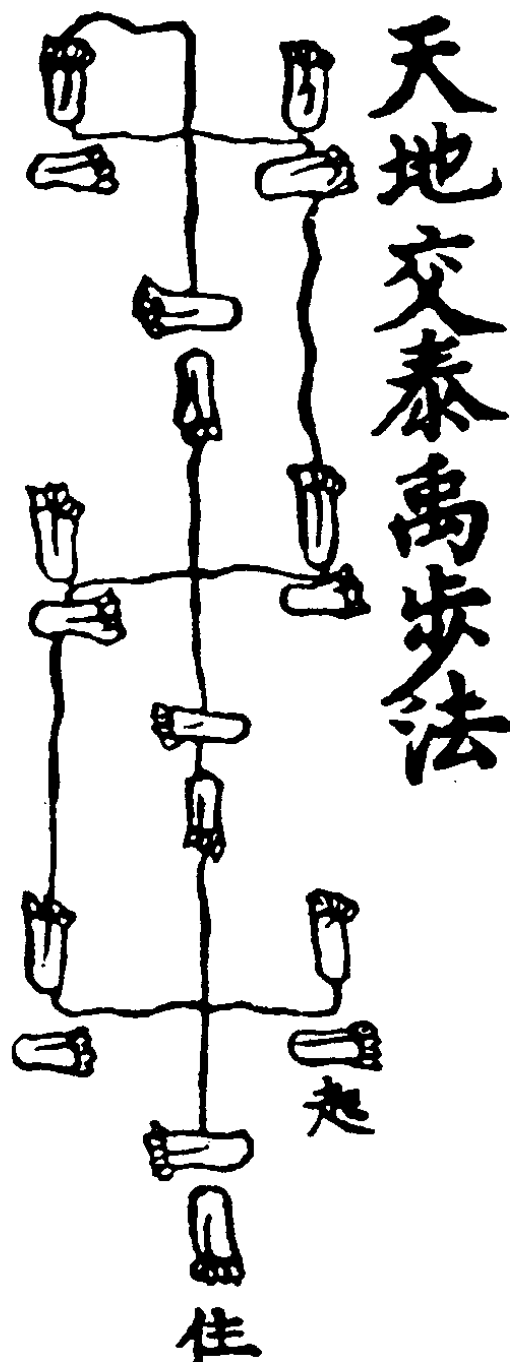 天地交泰禹步法
起
住